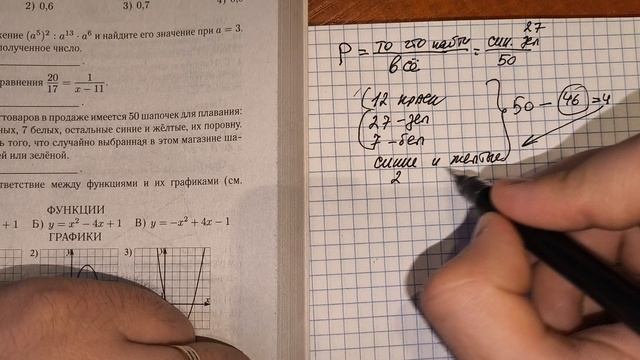 2) 0,6 3) 0,7
жение (a⁵)² : a¹³ · a⁶ и найдите его значение при a = 3.
полученное число.
уравнения 20/17 = 1/(x − 11).
товаров в продаже имеется 50 шапочек для плавания:
ных, 7 белых, остальные синие и жёлтые, их поровну.
ь того, что случайно выбранная в этом магазине ша-
ей или зелёной.
ответствие между функциями и их графиками (см.
ФУНКЦИИ
+ 1 Б) y = x² − 4x + 1 В) y = −x² + 4x − 1
ГРАФИКИ
2) 3)
27
P = то что найти / всё = син. зел / 50
12 красн
27 - зел
7 - бел
синие и желтые
2
50 − 46 = 4